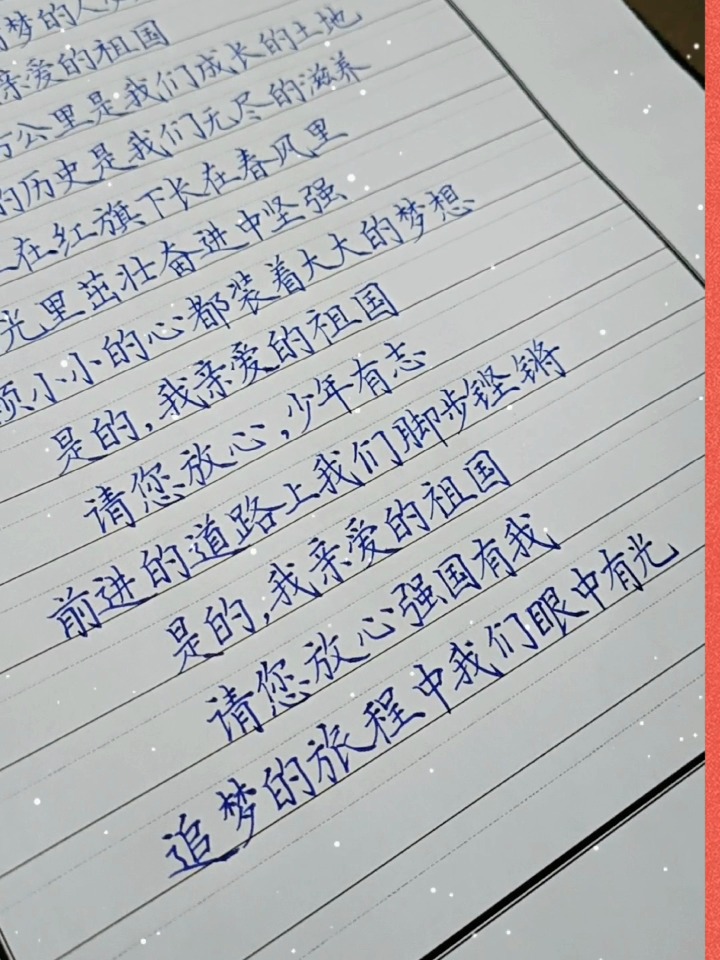 梦的人
亲爱的祖国
万公里是我们成长的土地
的历史是我们无尽的滋养
在红旗下长在春风里
光里茁壮奋进中坚强
颗小小的心都装着大大的梦想
是的,我亲爱的祖国
请您放心,少年有志
前进的道路上我们脚步铿锵
是的,我亲爱的祖国
请您放心强国有我
追梦的旅程中我们眼中有光